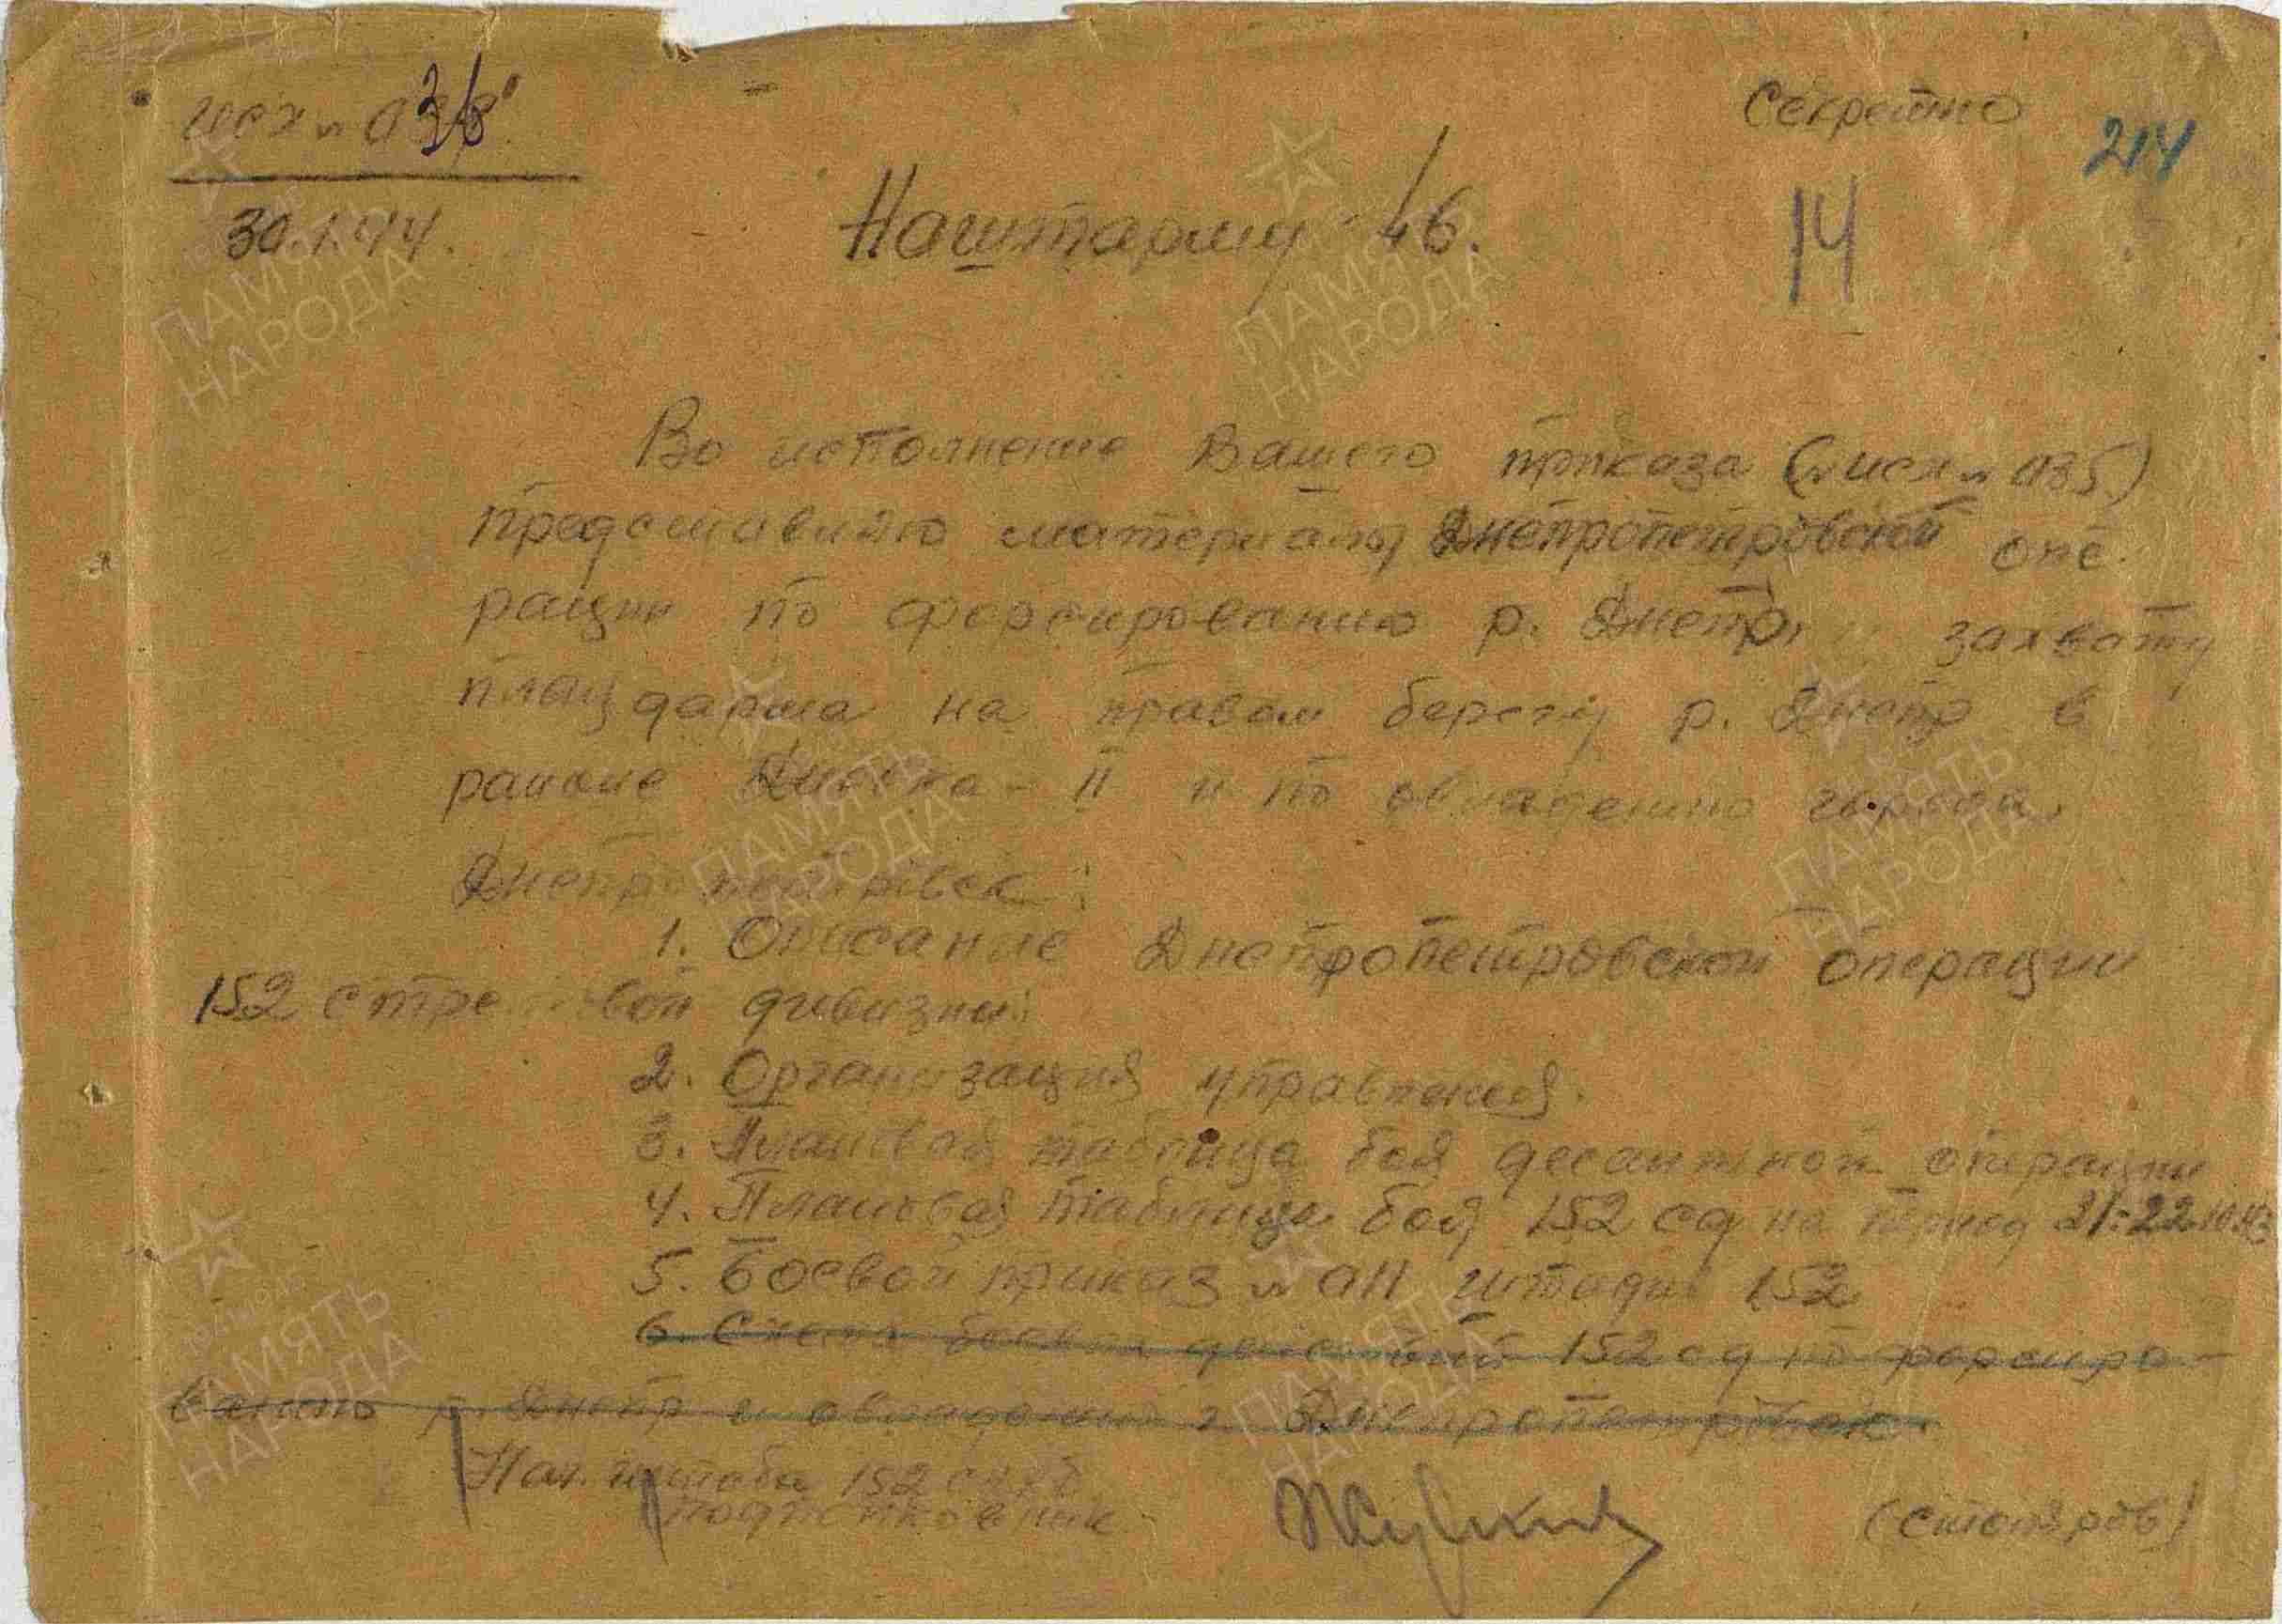 исх № 038
Секретно
214
30.1.44.
Наштарму 46.
14
Во исполнение Вашего приказа (№ исх № 035)
представляю материалы Днепропетровской опе-
рации по форсированию р. Днепр и захвату
плацдарма на правом берегу р. Днепр в
районе Диевка-II и по овладению города
Днепропетровск:
1. Описание Днепропетровской операции
152 стрелковой дивизии:
2. Организация управления.
3. Плановая таблица боя десантной операции
4. Плановая таблица боя 152 сд на период 21-22.10.43
5. Боевой приказ № 011 штади 152
6. Схема боевых действий 152 сд по форсиро-
ванию р. Днепр и овладению г. Днепропетровск.
Нач. штаба 152
подполковник
(Столяров)
ПАМЯТЬ
НАРОДА
ПАМЯТЬ
НАРОДА
ПАМЯТЬ
НАРОДА
ПАМЯТЬ
НАРОДА
ПАМЯТЬ
НАРОДА
ПАМЯТЬ
НАРОДА